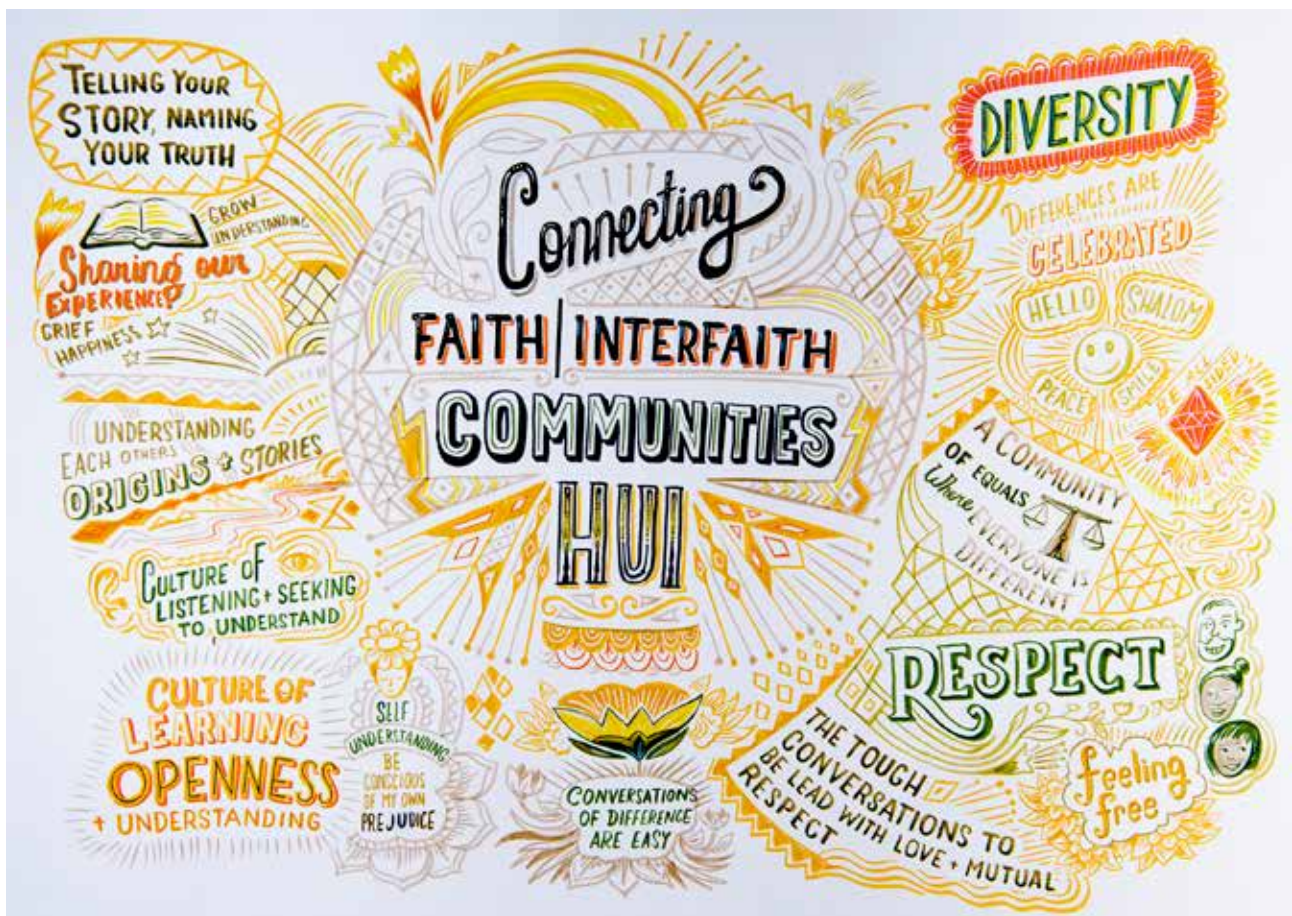 TELLING YOUR
STORY, NAMING
YOUR TRUTH
GROW
UNDERSTANDING
Sharing our
EXPERIENCES
GRIEF
HAPPINESS
UNDERSTANDING
EACH OTHERS
ORIGINS + STORIES
CULTURE OF
LISTENING + SEEKING
TO UNDERSTAND
CULTURE OF
LEARNING
OPENNESS
+ UNDERSTANDING
SELF
UNDERSTANDING
BE
CONSCIOUS
OF MY OWN
PREJUDICE
Connecting
FAITH | INTERFAITH
COMMUNITIES
HUI
CONVERSATIONS
OF DIFFERENCE
ARE EASY
DIVERSITY
DIFFERENCES ARE
CELEBRATED
HELLO
SHALOM
PEACE
SMILE
A COMMUNITY
OF EQUALS
Where EVERYONE IS
DIFFERENT
RESPECT
THE TOUGH
CONVERSATIONS TO
BE LEAD WITH LOVE + MUTUAL
RESPECT
feeling
free